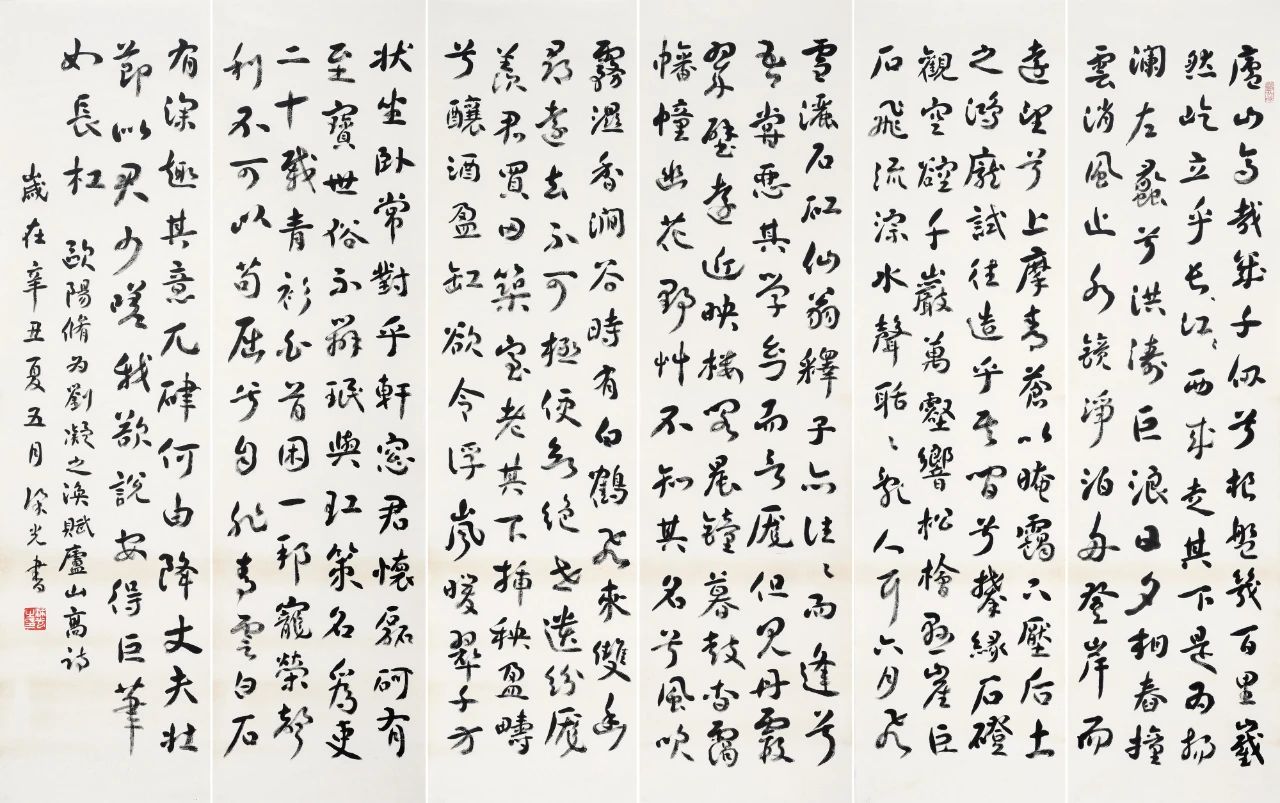 廬山高哉幾千仞兮根盤幾百里巀
然屹立乎長江〻西來走其下是為揚
瀾左蠡兮洪濤巨浪日夕相舂撞
雲消風止水鏡淨泊舟登岸而
遠望兮上摩青蒼以晻靄下壓后土
之鴻厖試往造乎其間兮攀緣石磴
觀空硿千巖萬壑響松檜懸崖巨
石飛流淙水聲聒〻亂人耳六月飛
雪灑石矼仙翁釋子亦往〻而逢兮
吾嘗惡其学幻而言厖但見丹霞
翠壁遠近映樓閣晨鐘暮鼓杳靄
幡幢幽花野艸不知其名兮風吹
霧濕香澗谷時有白鶴飛來雙幽
尋遠去不可極便欲絕世遺紛厖
羨君買田築室老其下插秧盈疇
兮釀酒盈缸欲令浮嵐暖翠千万
狀坐臥常對乎軒窓君懷磊砢有
至寶世俗不辨珉與玒策名為吏
二十載青衫白首困一邦寵榮聲
利不可以苟屈兮自非青雲白石
有深趣其意兀硉何由降丈夫壯
節似君少嗟我欲說安得巨筆
如長杠 歐陽脩为劉凝之渙賦廬山高詩
歲在辛丑夏五月 光書